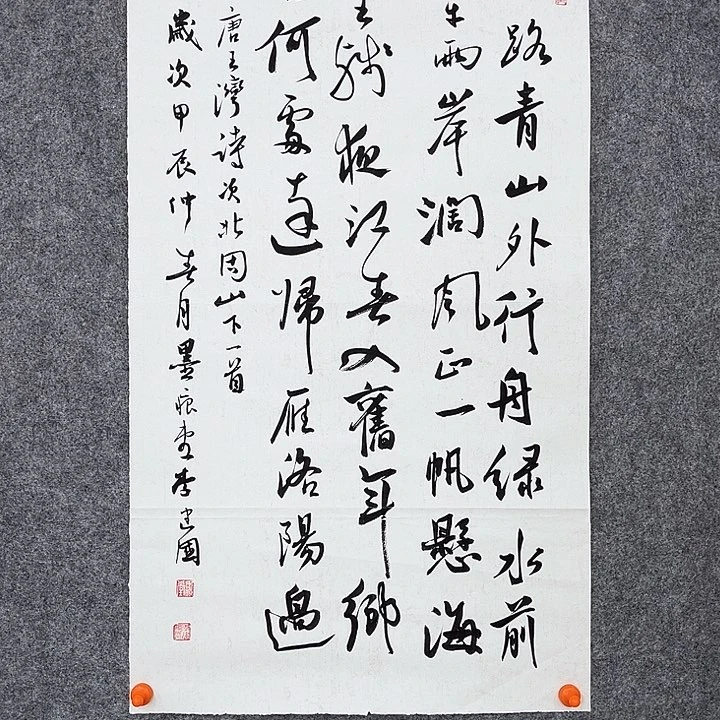 路青山外行舟绿水前
平兩岸濶風正一帆懸海
生殘夜江春入舊年鄉
何處達歸雁洛陽邊
唐王灣詩次北固山下一首
歲次甲辰仲春月墨痕堂李建國